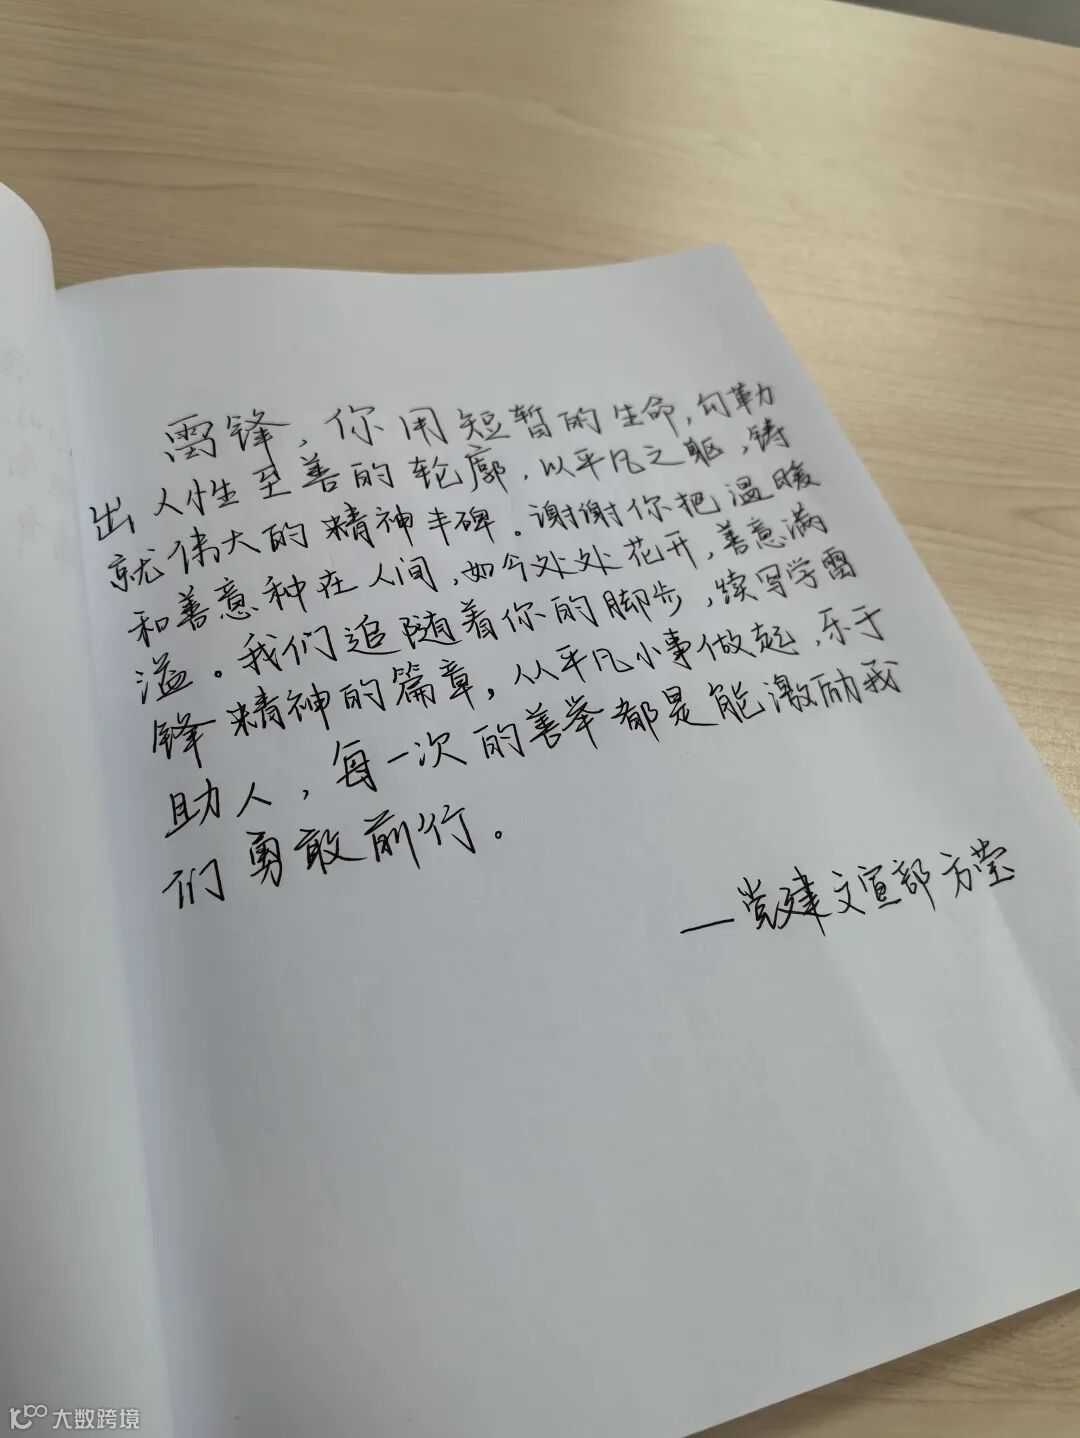 雷锋，你用短暂的生命，勾勒
出人性至善的轮廓，以平凡之躯，铸
就伟大的精神丰碑。谢谢你把温暖
和善意种在人间，如今处处花开，善意满
溢。我们追随着你的脚步，续写学雷
锋精神的篇章，从平凡小事做起，乐于
助人，每一次的善举都是能激励我
们勇敢前行。
—党建文宣部 方莹
大数跨境